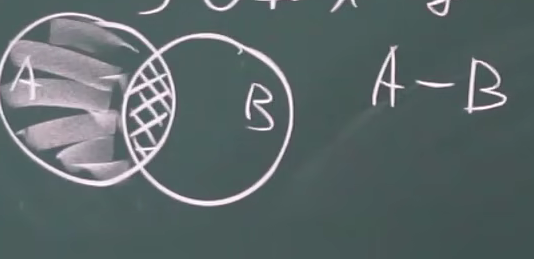 A B A-B